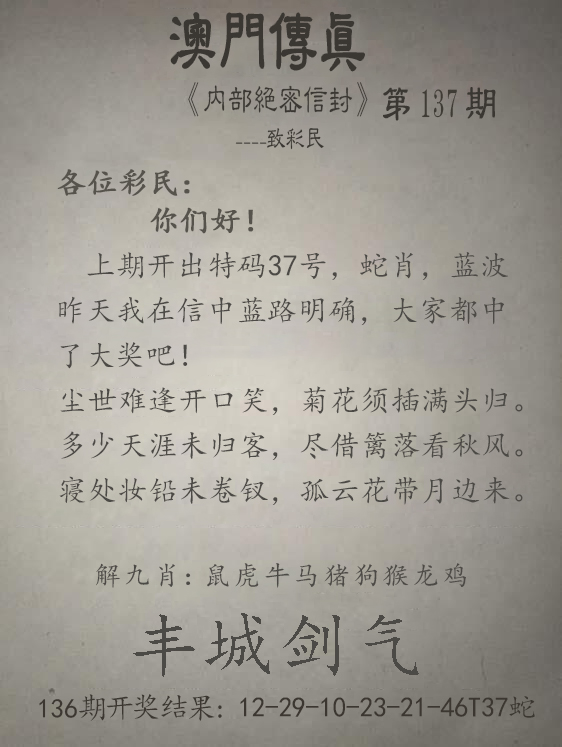 澳門傳眞
《内部絕密信封》第137期
----致彩民
各位彩民：
你们好！
上期开出特码37号，蛇肖，蓝波
昨天我在信中蓝路明确，大家都中
了大奖吧！
尘世难逢开口笑，菊花须插满头归。
多少天涯未归客，尽借篱落看秋风。
寝处妆铅未卷钗，孤云花带月边来。
解九肖：鼠虎牛马猪狗猴龙鸡
丰城剑气
136期开奖结果：12-29-10-23-21-46T37蛇